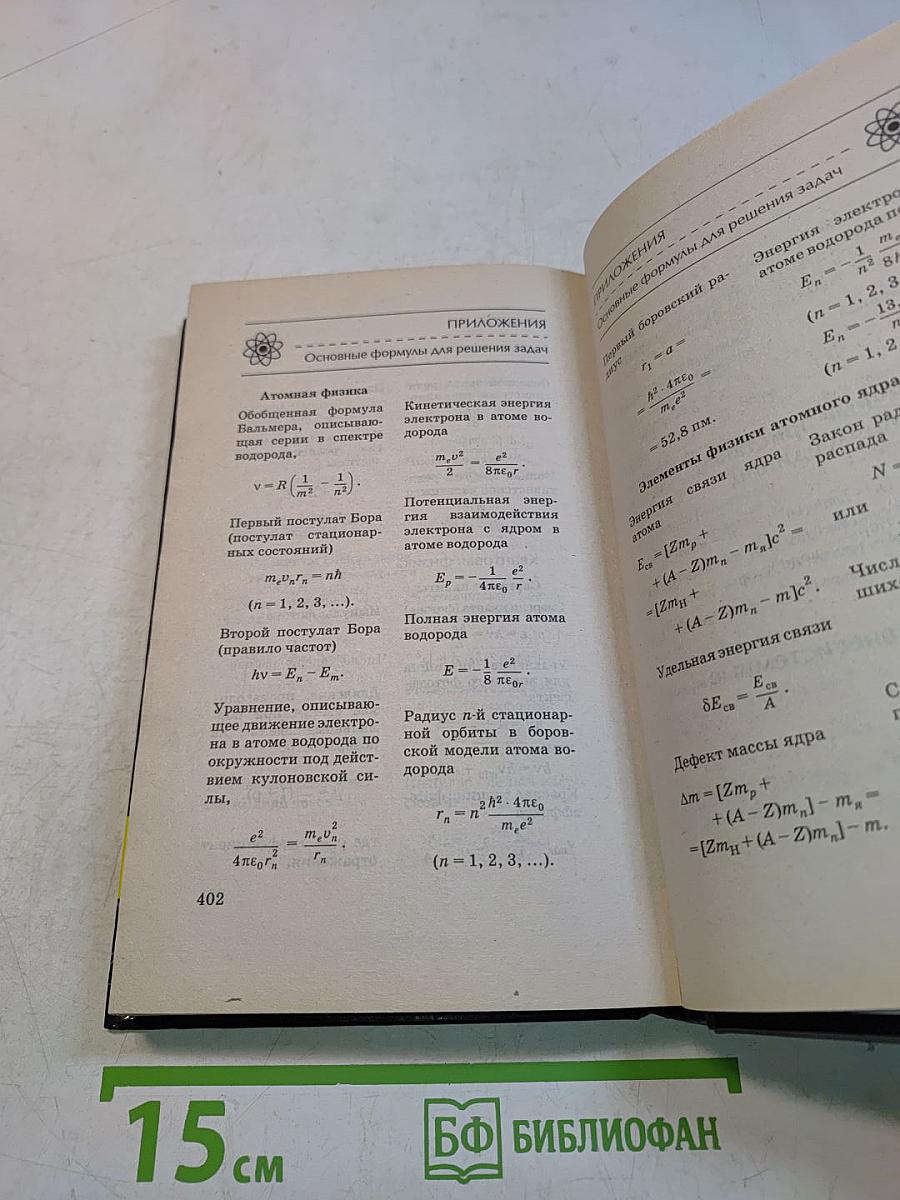 ПРИЛОЖЕНИЯ
Основные формулы для решения задач
Атомная физика
Обобщенная формула
Бальмера, описываю-
щая серии в спектре
водорода,
ν = R(1/m² − 1/n²).
Первый постулат Бора
(постулат стационар-
ных состояний)
mₑvₙrₙ = nħ
(n = 1, 2, 3, ...).
Второй постулат Бора
(правило частот)
hν = Eₙ − Eₘ.
Уравнение, описываю-
щее движение электро-
на в атоме водорода по
окружности под дейст-
вием кулоновской си-
лы,
e²/4πε₀rₙ² = mₑvₙ²/rₙ.
402
Кинетическая энергия
электрона в атоме во-
дорода
mₑv²/2 = e²/8πε₀r.
Потенциальная энер-
гия взаимодействия
электрона с ядром в
атоме водорода
Eₚ = −1/4πε₀ e²/r.
Полная энергия атома
водорода
E = −1/8 e²/πε₀ᵣ.
Радиус n-й стационар-
ной орбиты в боров-
ской модели атома во-
дорода
rₙ = n² ħ² · 4πε₀/mₑe²
(n = 1, 2, 3, ...).
ПРИЛОЖЕНИЯ
Основные формулы для решения задач
Первый боровский ра-
диус
r₁ = a =
= ħ² · 4πε₀/mₑe² =
= 52,8 пм.
Энергия электро
атоме водорода
Eₙ = −1/n²
(n = 1, 2, 3
Eₙ = −13,
(n = 1, 2
Элементы физики атомного ядра
Энергия связи ядра
атома
Eсв = [Zmₚ +
+ (A − Z)mₙ − mя]c² =
= [Zm_H +
+ (A − Z)mₙ − m]c².
Удельная энергия связи
δEсв = Eсв/A.
Дефект массы ядра
Δm = [Zmₚ +
+ (A − Z)mₙ] − mя =
= [Zm_H + (A − Z)mₙ] − m.
Закон рад
распада
N =
или
Числ
ших
15 см
БФ БИБЛИОФАН